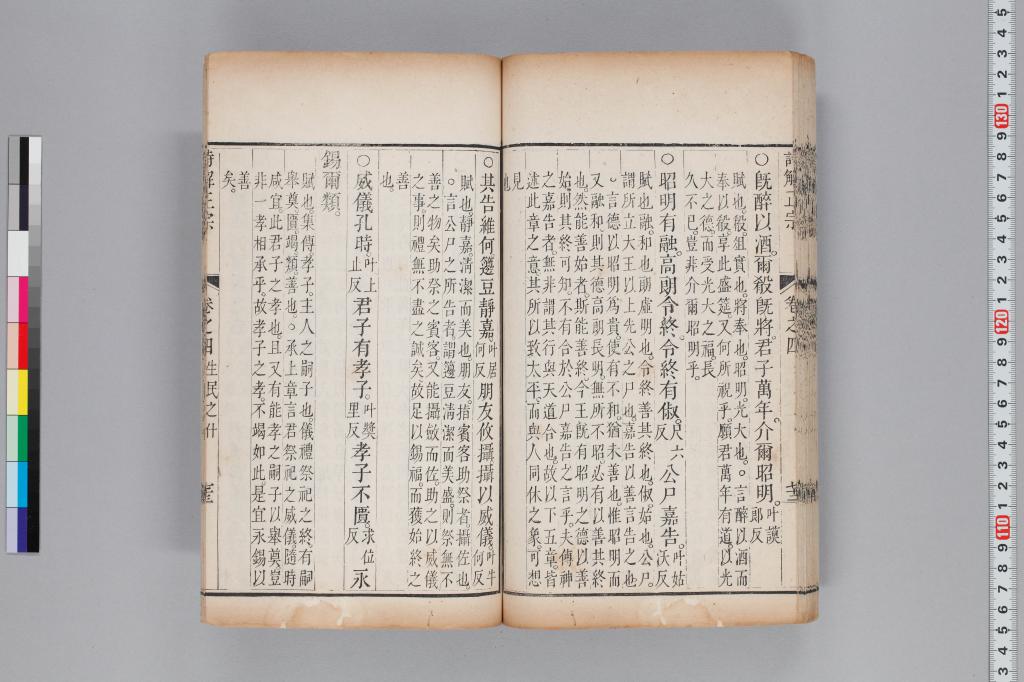 ○既醉以酒。爾殽既將。君子萬年。介爾昭明。叶謨郎反
賦也。殽。俎實也。將奉也。昭明。光大也。○言醉以酒而
奉以殽享此盛筵又何所祝乎願君萬年有道以光
大之德而受光大之福長
久不已。豈非介爾昭明乎。
○昭明有融。高朗令終。令終有俶。尺六反公尸嘉告。叶姑沃反
賦也。融。和也朗虛明也。令終善其終也。俶。始也。公尸。
謂所立大王以上先公之尸也。嘉告以善言告之也
○言德以昭明為貴。使有不和猶未善也惟昭明而
又融和。則其德高朗長明無所不昭必有以善其終
也。然能善始者斯能善終今王既有昭明之德以善
始。則其終可知。不有合於公尸嘉告之言乎。夫傳神
之嘉告者。無非謂其行與天道合也。故以下五章。皆
述此章之意其所以致太平。而與人同休之象。可想
見也
詩解正宗
卷之四
○其告維何。籩豆靜嘉。叶居何反朋友攸攝攝以威儀叶牛何反
賦也。靜嘉。清潔而美也。朋友。指賓客助祭者。攝佐也。
○言公尸之所告者。謂籩豆清潔而美盛。則祭無不
善之物矣助祭之賓客。又能攝斂而佐。助之以威儀
之事。則禮無不盡之誠矣故足以錫福。而獲始終之
善也。
○威儀孔時叶上止反君子有孝子。叶獎里反孝子不匱。求位反永
錫爾類。
賦也集傳孝子。主人之嗣子也。儀禮祭祀之終有嗣
舉奠。匱。竭類。善也。○承上章言君祭祀之威儀隨時
咸宜此君子之孝也且又有能孝之嗣子以舉奠豈
非一孝相承乎。故孝子之孝。不竭如此是宜永錫以
善矣。
詩解正宗
卷之四
生民之什